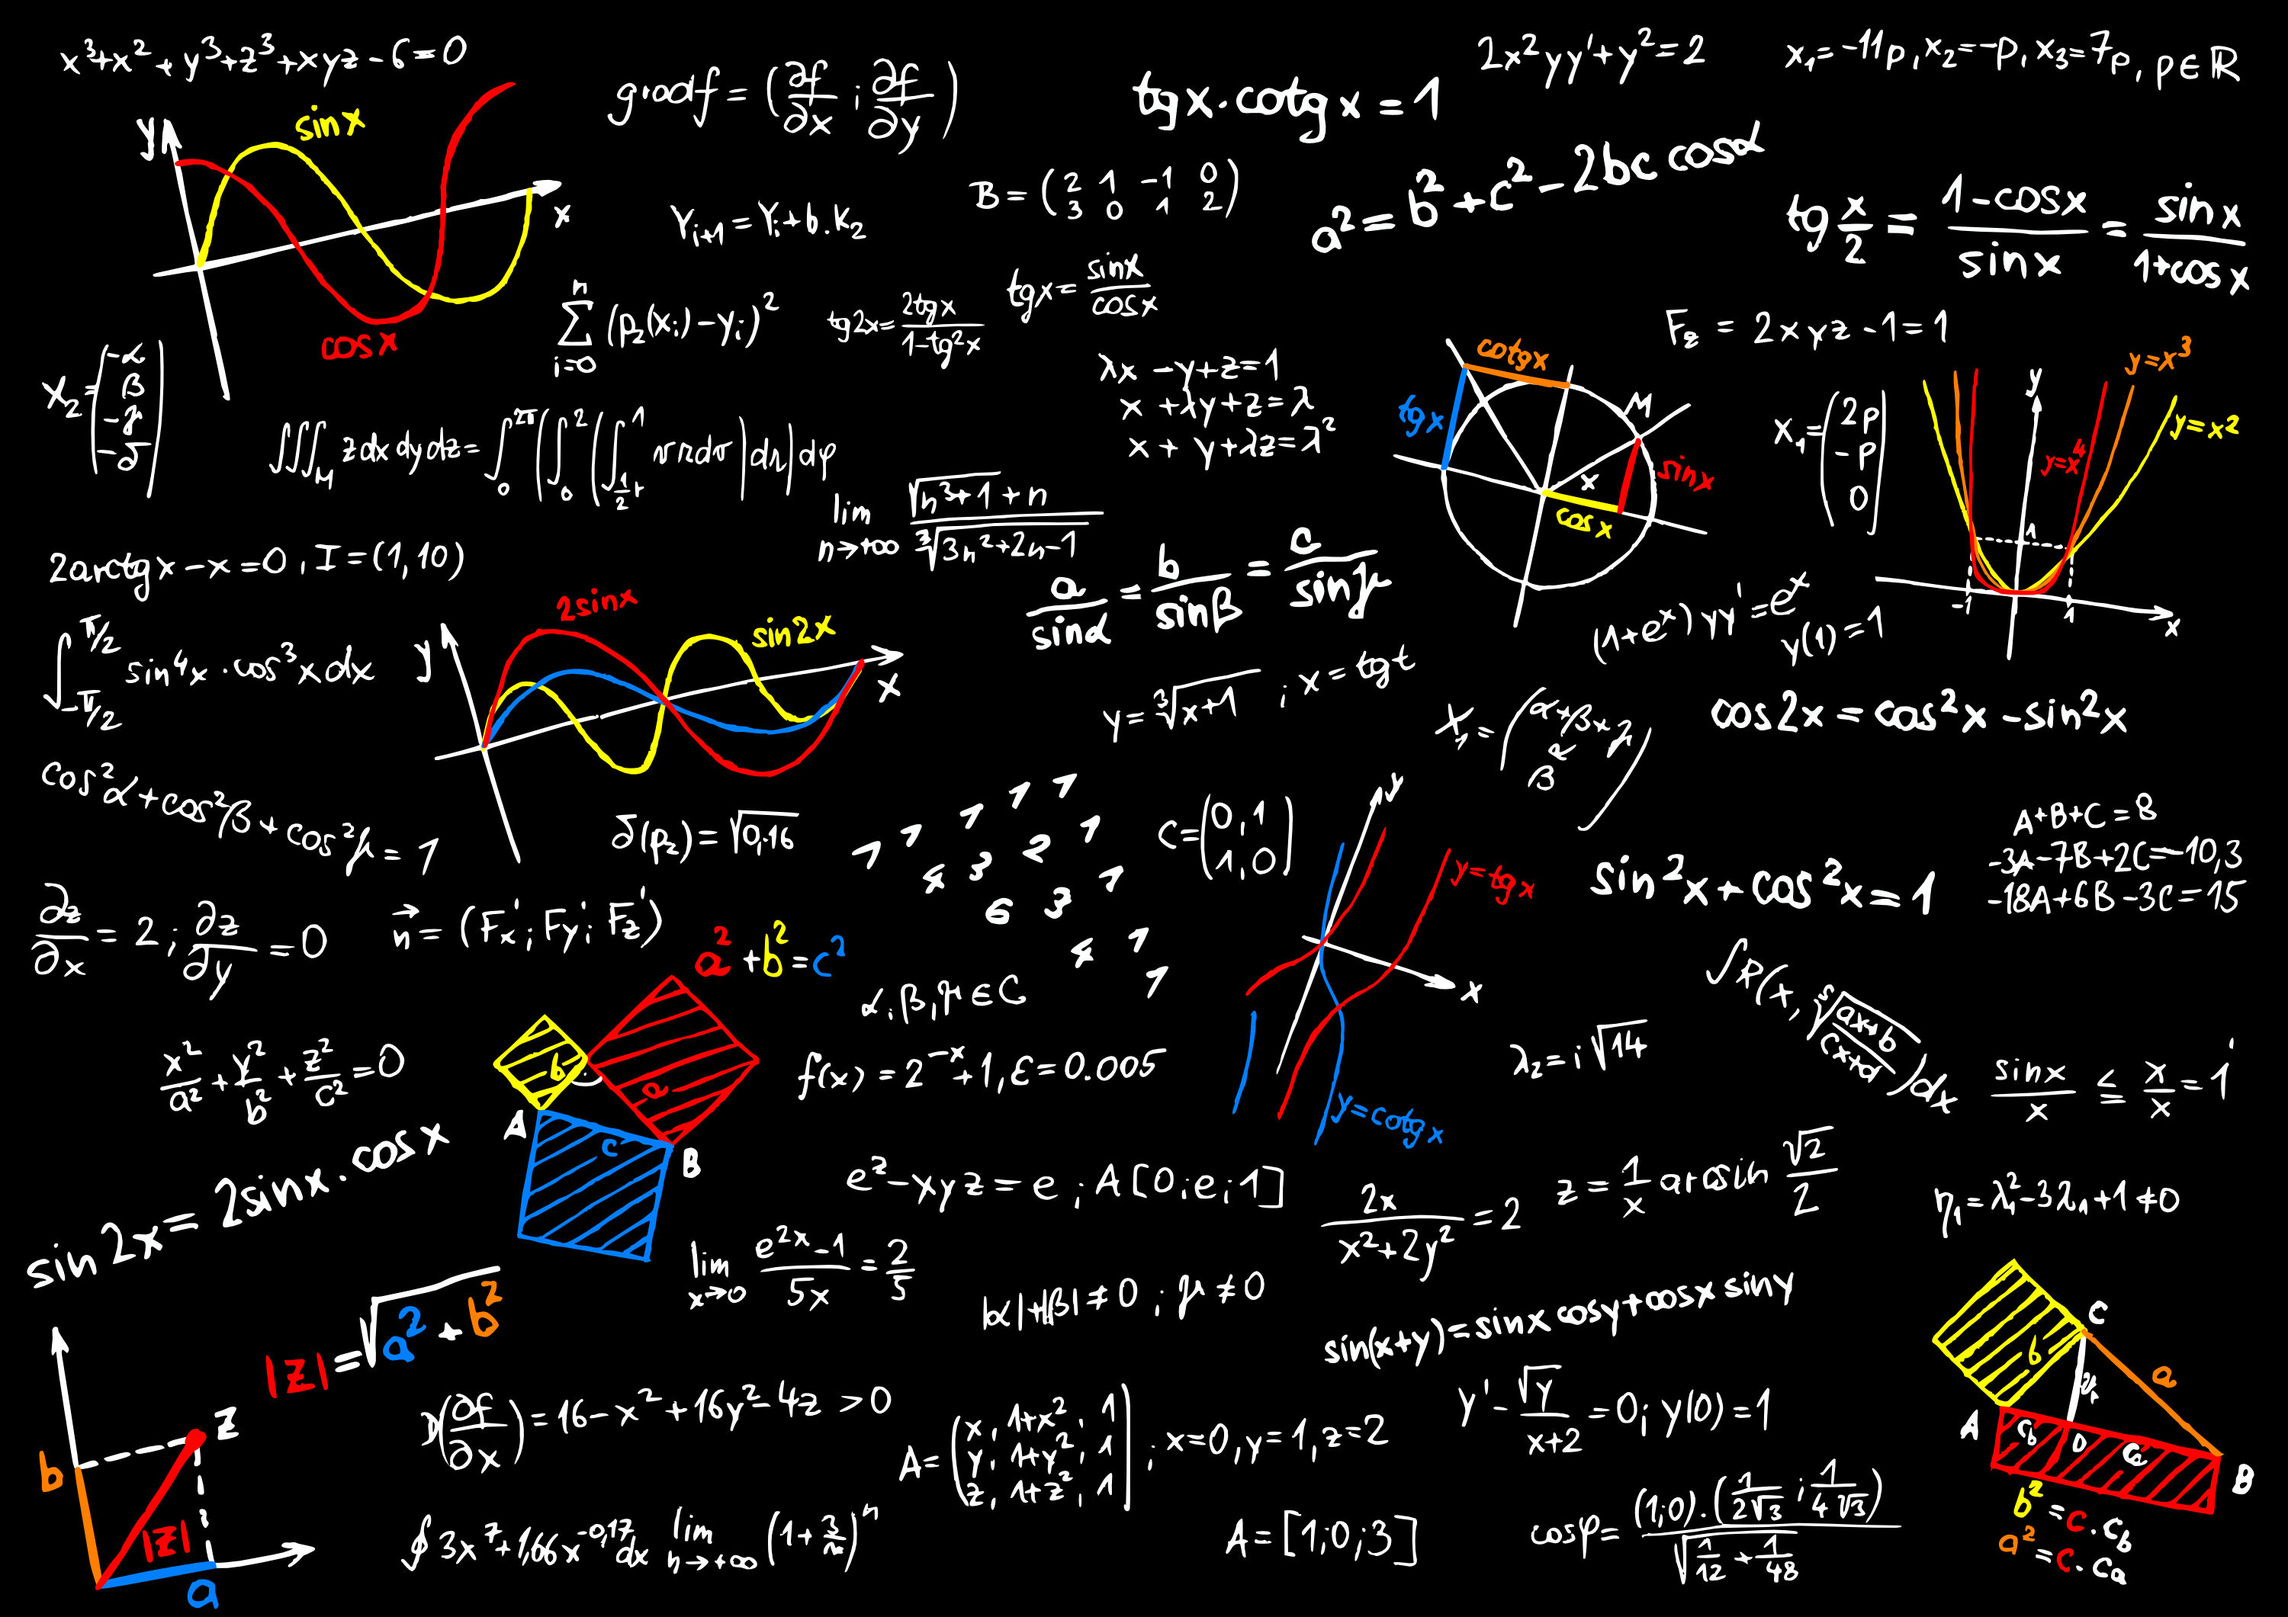 x³+x²+y³+z³+xyz-6=0
gradf = (∂f/∂x ; ∂f/∂y)
tgx·cotgx = 1
2x²yy'+y²=2
x₁=-11p, x₂=-p, x₃=7p, p∈ℝ
y
sinx
x
cosx
Yᵢ₊₁=Yᵢ+b.K₂
B=(2 1 -1 0
3 0 1 2)
a²=b²+c²-2bc cosα
tg x/2 = 1-cosx/sinx = sinx/1+cosx
∑ᵢ₌₀ⁿ (p₂(xᵢ)-yᵢ)²
tg2x=2tgx/1-tg²x
tgx=sinx/cosx
F_z = 2xyz-1=1
X₂=(-α
β
-γ
-δ)
λx -y+z=1
x +λy+z=λ
x + y+λz=λ²
cotgx
tgx
M
sinx
x
cosx
X₁=(2p
-p
0)
y
y=x³
y=x²
y=x⁴
1
-1
1
x
∭_M zdxdydz=∫₀^2π(∫₀²(
lim n→+∞ √n³+1+n/∛3n²+2n-1
2arctgx-x=0, I=(1,10)
a/sinα = b/sinβ = c/sinγ
(1+eˣ)yy'=eˣ
y(1)=1
∫_-π/2^π/2 sin⁴x·cos³xdx
y
2sinx
sin2x
x
y=∛x+1 ; x=tgt
X₁=(α+β+γ
α
β)
cos2x = cos²x-sin²x
cos²α+cos²β+cos²γ=1
δ(p₂)=√0,16
1 1 1 1 1 1
4 3 2 1
6 3 1
4 1
1
C=(0,1
1,0)
y
y=tgx
x
y=cotgx
sin²x+cos²x=1
A+B+C=8
-3A-7B+2C=-10,3
-18A+6B-3C=15
∂z/∂x=2; ∂z/∂y=0
n⃗=(Fx'; Fy; Fz')
a²+b²=c²
b
a
A
c
B
α,β,γ∈C
x²/a²+y²/b²+z²/c²=0
f(x)=2⁻ˣ+1, ε=0.005
λ₂=i√14
∫R(x, ⁵√ax+b/cx+d)dx
sinx/x ≦ x/x=1
sin2x=2sinx·cosx
eᶻ-xyz=e; A[0;e;1]
2x/x²+2y²=2
z=1/x arcsin √2/2
η₁=λ₁²-3λ₁+1≠0
lim x→0 e²ˣ-1/5x=2/5
|α|+|β|≠0 ; γ≠0
sin(x+y)=sinxcosy+cosxsiny
|z|=√a²+b²
b
z
|z|
a
(∂f/∂x)=16-x²+16y²-4z >0
A=(x, 1+x², 1
y, 1+y², 1
z, 1+z², 1) ; x=0, y=1, z=2
y'-√y/x+2=0; y(0)=1
C
b
a
A
D
B
b²=c·c_b
a²=c·c_a
∮3x⁷+1,66x^-0,17dx
lim n→+∞ (1+3/n)ⁿ
A=[1;0;3]
cosφ=(1;0).(1/2√3 ; 1/4√3)/√1/12+1/48